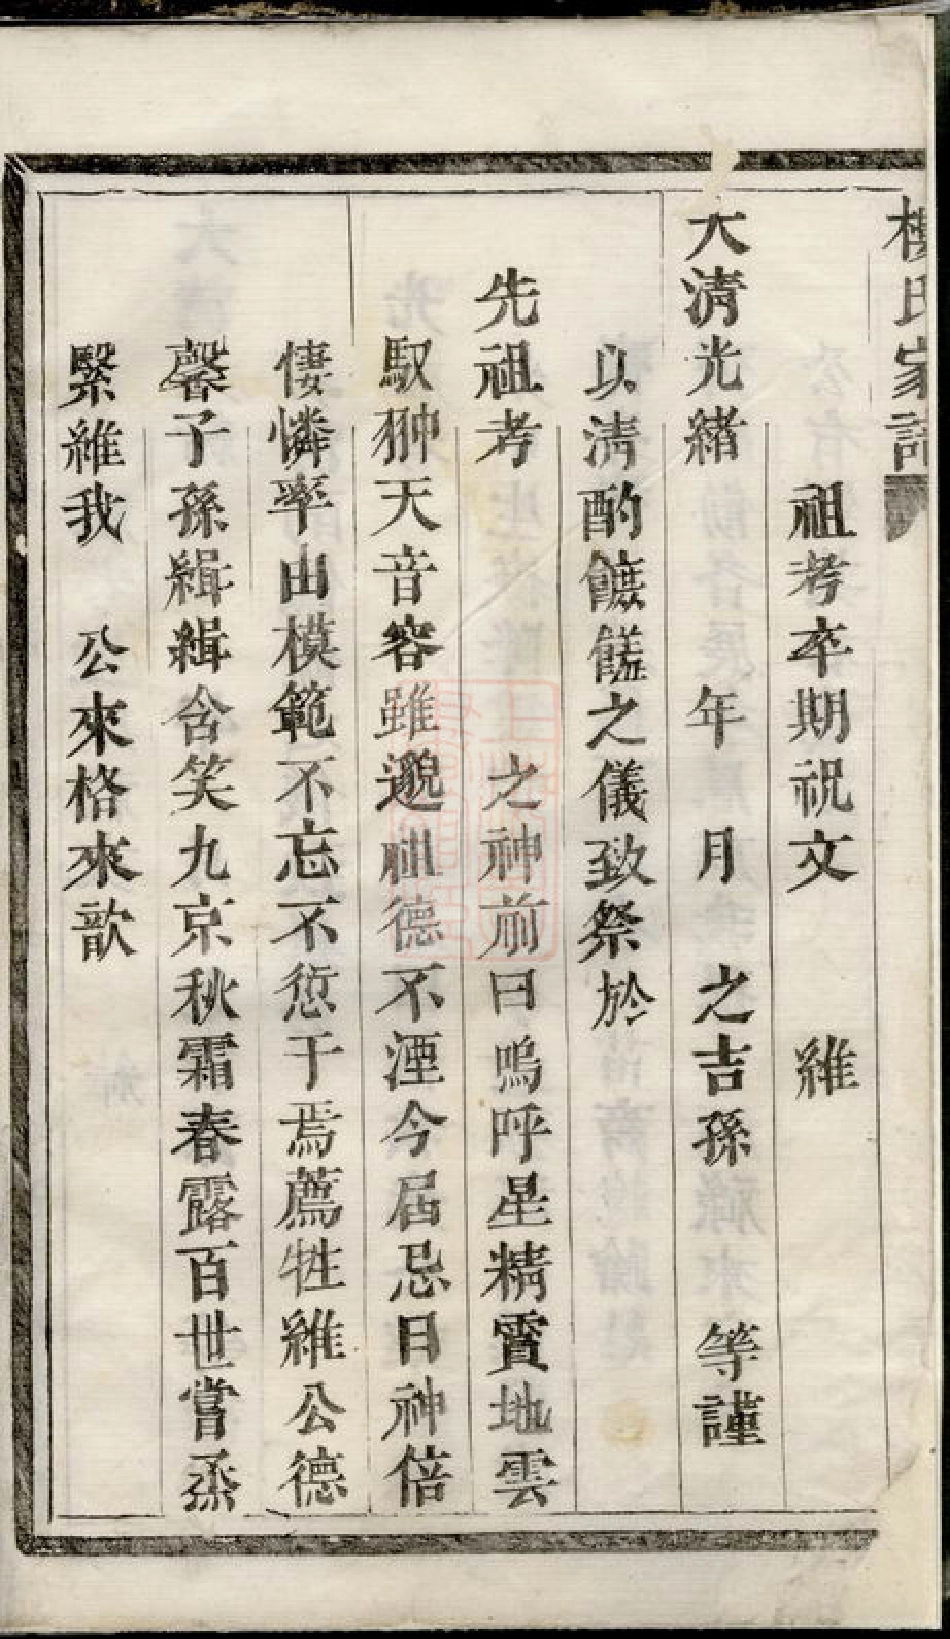 氏家
祖考卒期祝文　維
大清光緒　年　月　之吉孫　等謹
以清酌饝饈之儀致祭於
先祖考　之神前曰嗚呼星精賈地雲
馭翀天音容雖邈祖德不湮今屆忌日神倍
悽憐率由模範不忘不愆于焉薦牲維公德
馨子孫緝緝含笑九京秋霜春露百世嘗烝
緊維我　公來格來歆